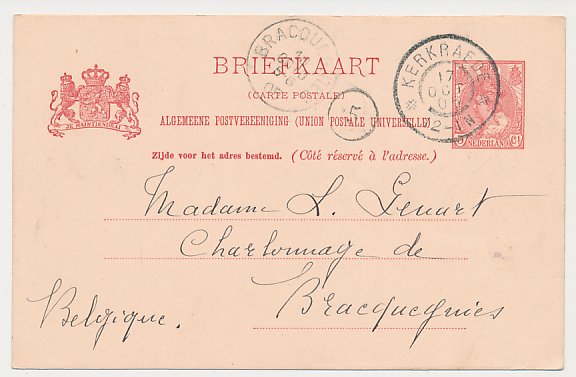 BRACQUE
BRIEFKAART
(CARTE POSTALE)
KERKRADE
17
OCT
2-3N
ALGEMEENE POSTVEREENIGING (UNION POSTALE UNIVERSELLE)
JE MAINTIENDRAI
NEDERLAND
Zijde voor het adres bestemd. (Côté réservé à l'adresse.)
Madame L. Genart
Charbonnage de
Bracquegnies
Belgique.